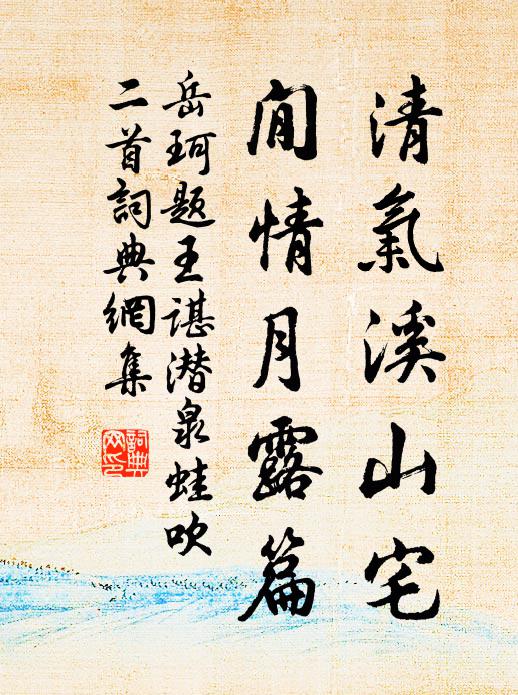 清氣溪山宅
閒情月露篇
岳珂題王諶潛泉蛙吹
二首詞典網集
詞典网印